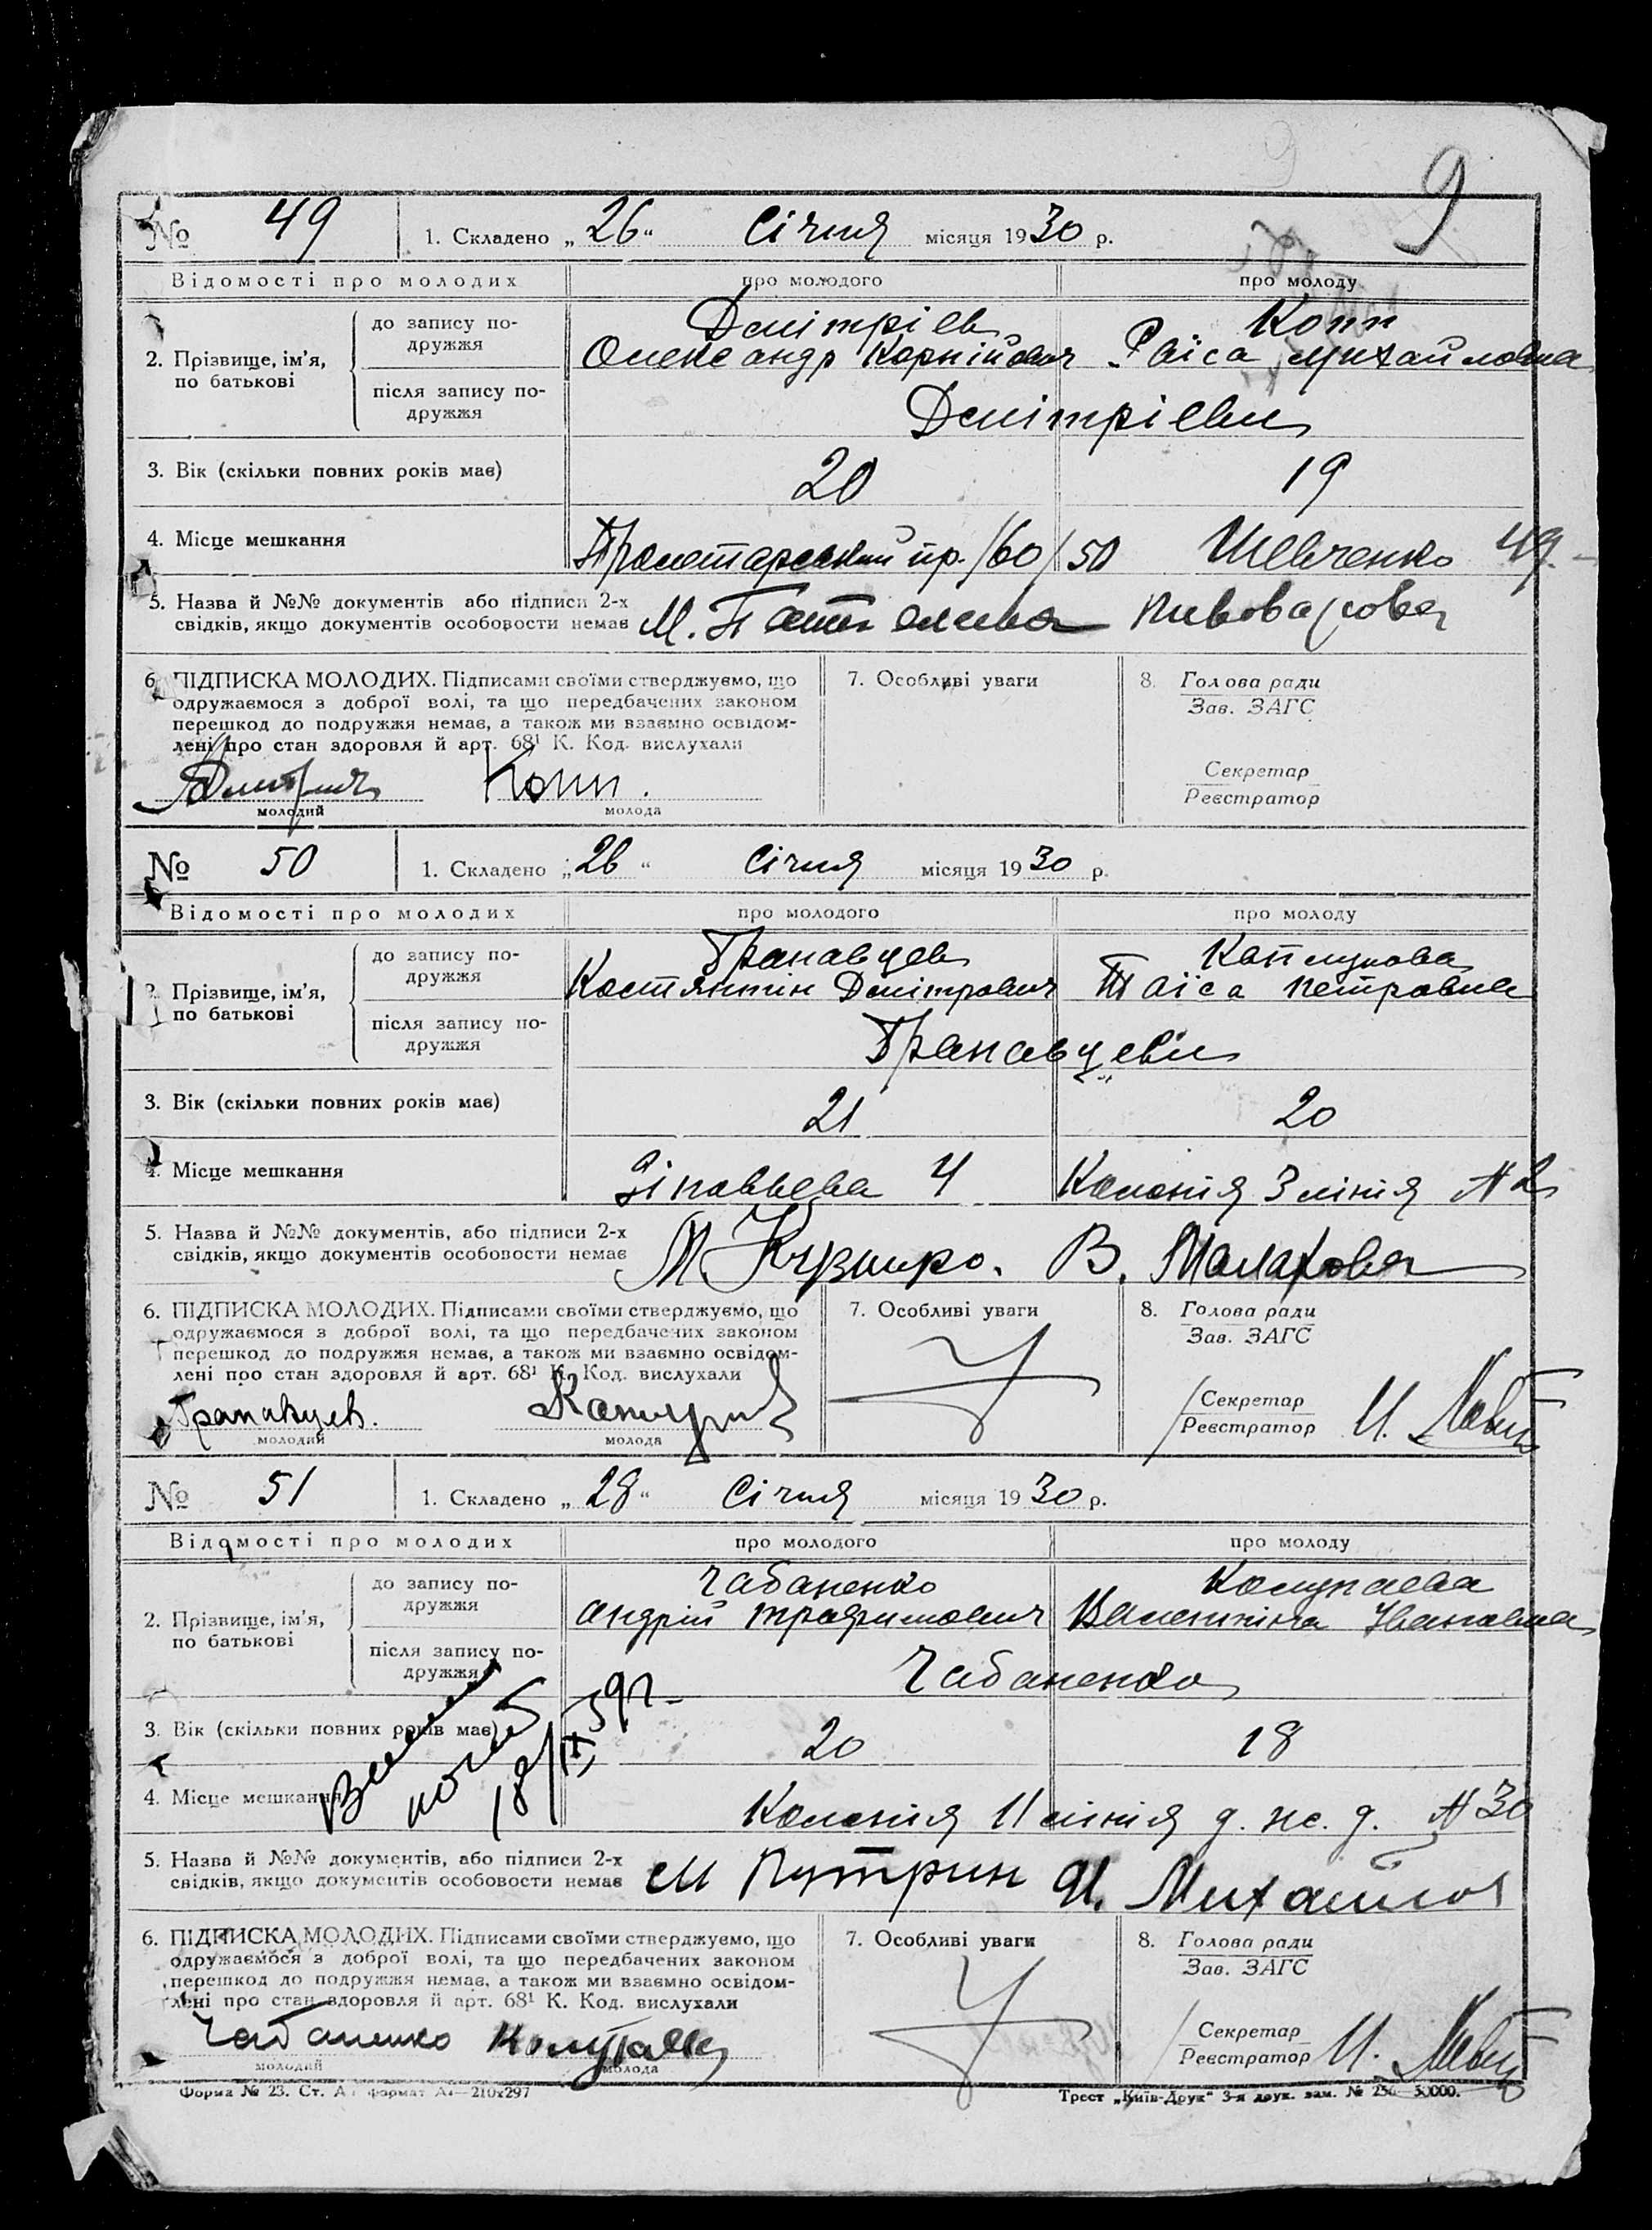 9
№ 49 1. Складено „26“ Січня місяця 1930 р.
Відомості про молодих про молодого про молоду
2. Прізвище, ім’я, по батькові
до запису подружжя
Дмітрієв Копп
Олександр Корнійович Раїса Михайловна
після запису подружжя
Дмітрієви
3. Вік (скільки повних років має) 20 19
4. Місце мешкання Пролетарський пр. /60/50 Шевченко 49.
5. Назва й №№ документів або підписи 2-х
свідків, якщо документів особовости немає М. Пивоварова
6. ПІДПИСКА МОЛОДИХ. Підписами своїми стверджуємо, що
одружаємося з доброї волі, та що передбачених законом
перешкод до подружжя немає, а також ми взаємно освідом-
лені про стан здоровля й арт. 68¹ К. Код. вислухали
Копп.
молодий молода
7. Особливі уваги
8. Голова ради
Зав. ЗАГС
Секретар
Реєстратор
№ 50 1. Складено „26“ Січня місяця 1930 р.
Відомості про молодих про молодого про молоду
2. Прізвище, ім’я, по батькові
до запису подружжя
Костянтін Дмітрович Таїса Петровна
після запису подружжя
3. Вік (скільки повних років має) 21 20
4. Місце мешкання Зіновьєва 4 Колонія 3 лінія № 2
5. Назва й №№ документів, або підписи 2-х
свідків, якщо документів особовости немає М. В. Малахова
6. ПІДПИСКА МОЛОДИХ. Підписами своїми стверджуємо, що
одружаємося з доброї волі, та що передбачених законом
перешкод до подружжя немає, а також ми взаємно освідом-
лені про стан здоровля й арт. 68¹ К. Код. вислухали
молодий молода
7. Особливі уваги
8. Голова ради
Зав. ЗАГС
Секретар
Реєстратор И.
№ 51 1. Складено „28“ Січня місяця 1930 р.
Відомості про молодих про молодого про молоду
2. Прізвище, ім’я, по батькові
до запису подружжя
Чабаненко Колупаєва
Андрій Трофимович Валентіна Івановна
після запису подружжя
Чабаненко
3. Вік (скільки повних років має) 20 18
4. Місце мешкання Колонія 11 лінія д. ж. д. № 30
18/IX 59г.
5. Назва й №№ документів, або підписи 2-х
свідків, якщо документів особовости немає М Путрин И. Михайлов
6. ПІДПИСКА МОЛОДИХ. Підписами своїми стверджуємо, що
одружаємося з доброї волі, та що передбачених законом
перешкод до подружжя немає, а також ми взаємно освідом-
лені про стан здоровля й арт. 68¹ К. Код. вислухали
Чабаненко
молодий молода
7. Особливі уваги
8. Голова ради
Зав. ЗАГС
Секретар
Реєстратор И.
Форма № 23. Ст. А₄ формат А₄—210x297
Трест „Київ-Друк“ 3-я друк. зам. №